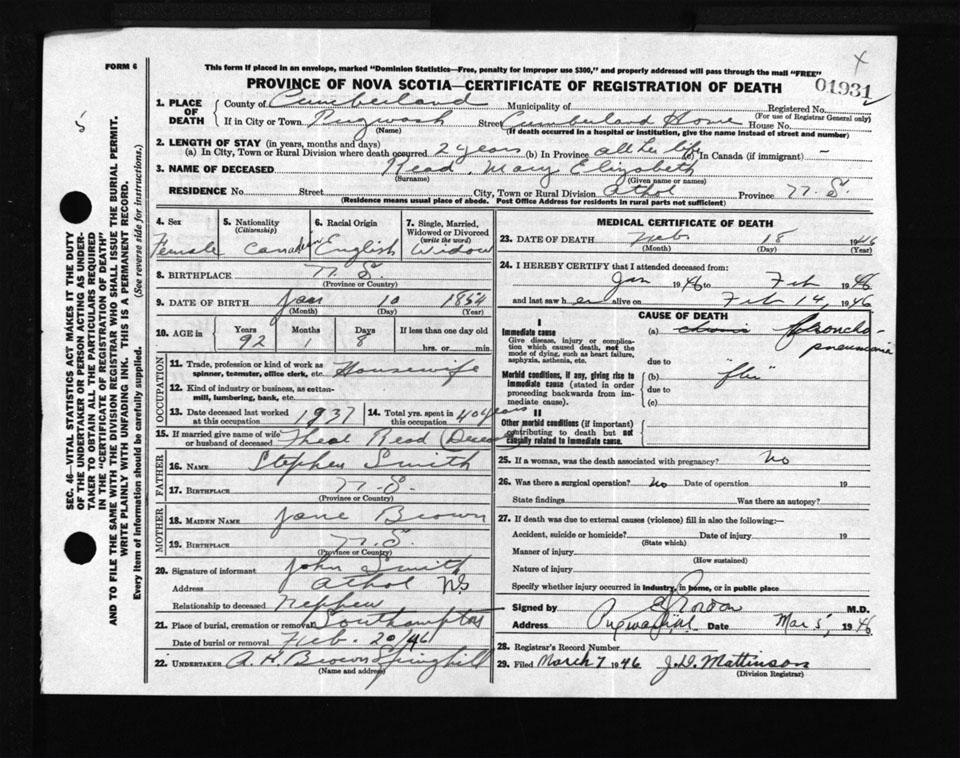 FORM 6
This form if placed in an envelope, marked "Dominion Statistics—Free, penalty for improper use $300," and properly addressed will pass through the mail "FREE"
X
PROVINCE OF NOVA SCOTIA—CERTIFICATE OF REGISTRATION OF DEATH
01931
5
SEC. 46—VITAL STATISTICS ACT MAKES IT THE DUTY
OF THE UNDERTAKER OR PERSON ACTING AS UNDER-
TAKER TO OBTAIN ALL THE PARTICULARS REQUIRED
IN THE "CERTIFICATE OF REGISTRATION OF DEATH"
AND TO FILE THE SAME WITH THE DIVISION REGISTRAR WHO SHALL ISSUE THE BURIAL PERMIT.
WRITE PLAINLY WITH UNFADING INK. THIS IS A PERMANENT RECORD.
Every item of information should be carefully supplied. (See reverse side for instructions.)
1. PLACE OF DEATH County of Cumberland Municipality of Registered No.
(For use of Registrar General only)
If in City or Town Pugwash Street Cumberland Home House No.
(Name) (If death occurred in a hospital or institution, give the name instead of street and number)
2. LENGTH OF STAY (in years, months and days)
(a) In City, Town or Rural Division where death occurred 2 years (b) In Province all her life (c) In Canada (if immigrant) —
3. NAME OF DECEASED Read, Mary Elizabeth
(Surname) (Given name or names)
RESIDENCE No. Street City, Town or Rural Division Athol Province N. S.
(Residence means usual place of abode. Post Office Address for residents in rural parts not sufficient)
4. Sex Female
5. Nationality (Citizenship) Canadian
6. Racial Origin English
7. Single, Married, Widowed or Divorced (write the word) Widow
8. BIRTHPLACE N. S.
(Province or Country)
9. DATE OF BIRTH Jan 10 1854
(Month) (Day) (Year)
10. AGE in Years 92 Months 1 Days 8 If less than one day old
hrs. or min.
OCCUPATION
11. Trade, profession or kind of work as spinner, teamster, office clerk, etc. Housewife
12. Kind of industry or business, as cotton-mill, lumbering, bank, etc.
13. Date deceased last worked at this occupation 1937
14. Total yrs. spent in this occupation 40 years
15. If married give name of wife or husband of deceased Read
FATHER
16. NAME Stephen Smith
17. BIRTHPLACE N. S.
(Province or Country)
MOTHER
18. MAIDEN NAME Jane Brown
19. BIRTHPLACE N. S.
(Province or Country)
20. Signature of informant John Smith
Address Athol N.S
Relationship to deceased Nephew
21. Place of burial, cremation or removal Southampton
Date of burial or removal Feb. 20/46
22. UNDERTAKER A. H. Brown Springhill
(Name and address)
MEDICAL CERTIFICATE OF DEATH
23. DATE OF DEATH Feb. 18 1946
(Month) (Day) (Year)
24. I HEREBY CERTIFY that I attended deceased from:
Jan 1946 to Feb 1946
and last saw her alive on Feb 14, 1946
CAUSE OF DEATH
I
Immediate cause
Give disease, injury or complication which caused death, not the mode of dying, such as heart failure, asphyxia, asthenia, etc.
(a) Broncho-pneumonia
due to
Morbid conditions, if any, giving rise to immediate cause (stated in order proceeding backwards from immediate cause).
(b) "flu"
due to
(c)
II
Other morbid conditions (if important) contributing to death but not causally related to immediate cause.
25. If a woman, was the death associated with pregnancy? No
26. Was there a surgical operation? No Date of operation 19
State findings Was there an autopsy?
27. If death was due to external causes (violence) fill in also the following:—
Accident, suicide or homicide? Date of injury 19
(State which)
Manner of injury
(How sustained)
Nature of injury
Specify whether injury occurred in industry, in home, or in public place
Signed by M.D.
Address Date Mar 5, 1946
28. Registrar's Record Number
29. Filed March 7 1946 J. D. Mattinson
(Division Registrar)